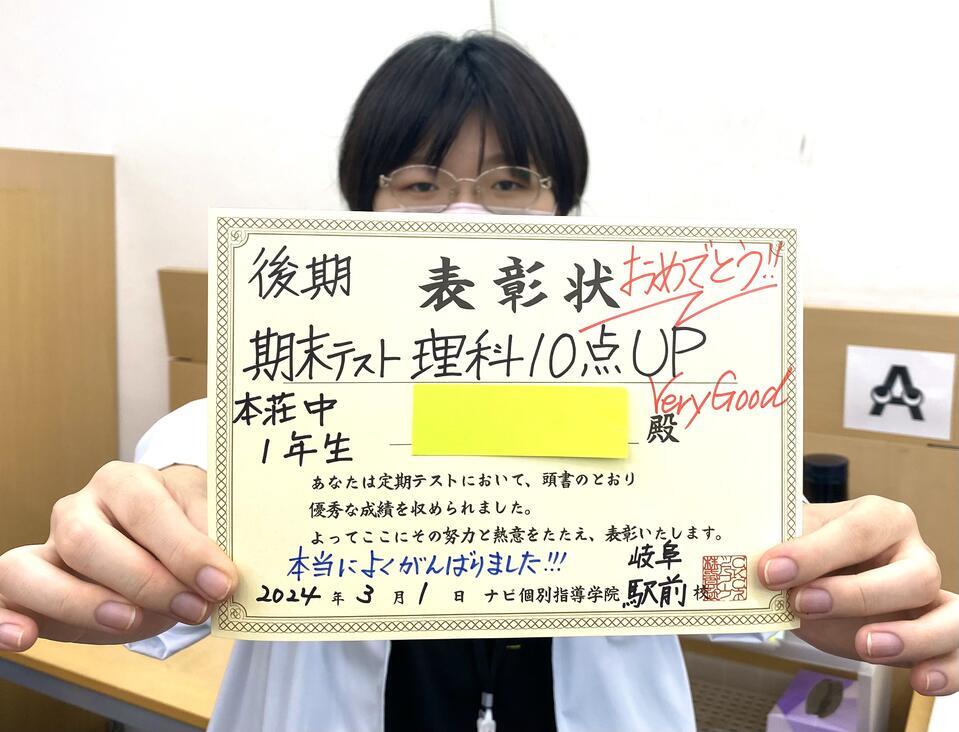 後期 表彰状 おめでとう!!
期末テスト 理科10点UP
Very Good
本荘中
1年生 殿
あなたは定期テストにおいて、頭書のとおり
優秀な成績を収められました。
よってここにその努力と熱意をたたえ、表彰いたします。
本当によくがんばりました!!!
岐阜
2024年3月1日 ナビ個別指導学院 駅前校
A